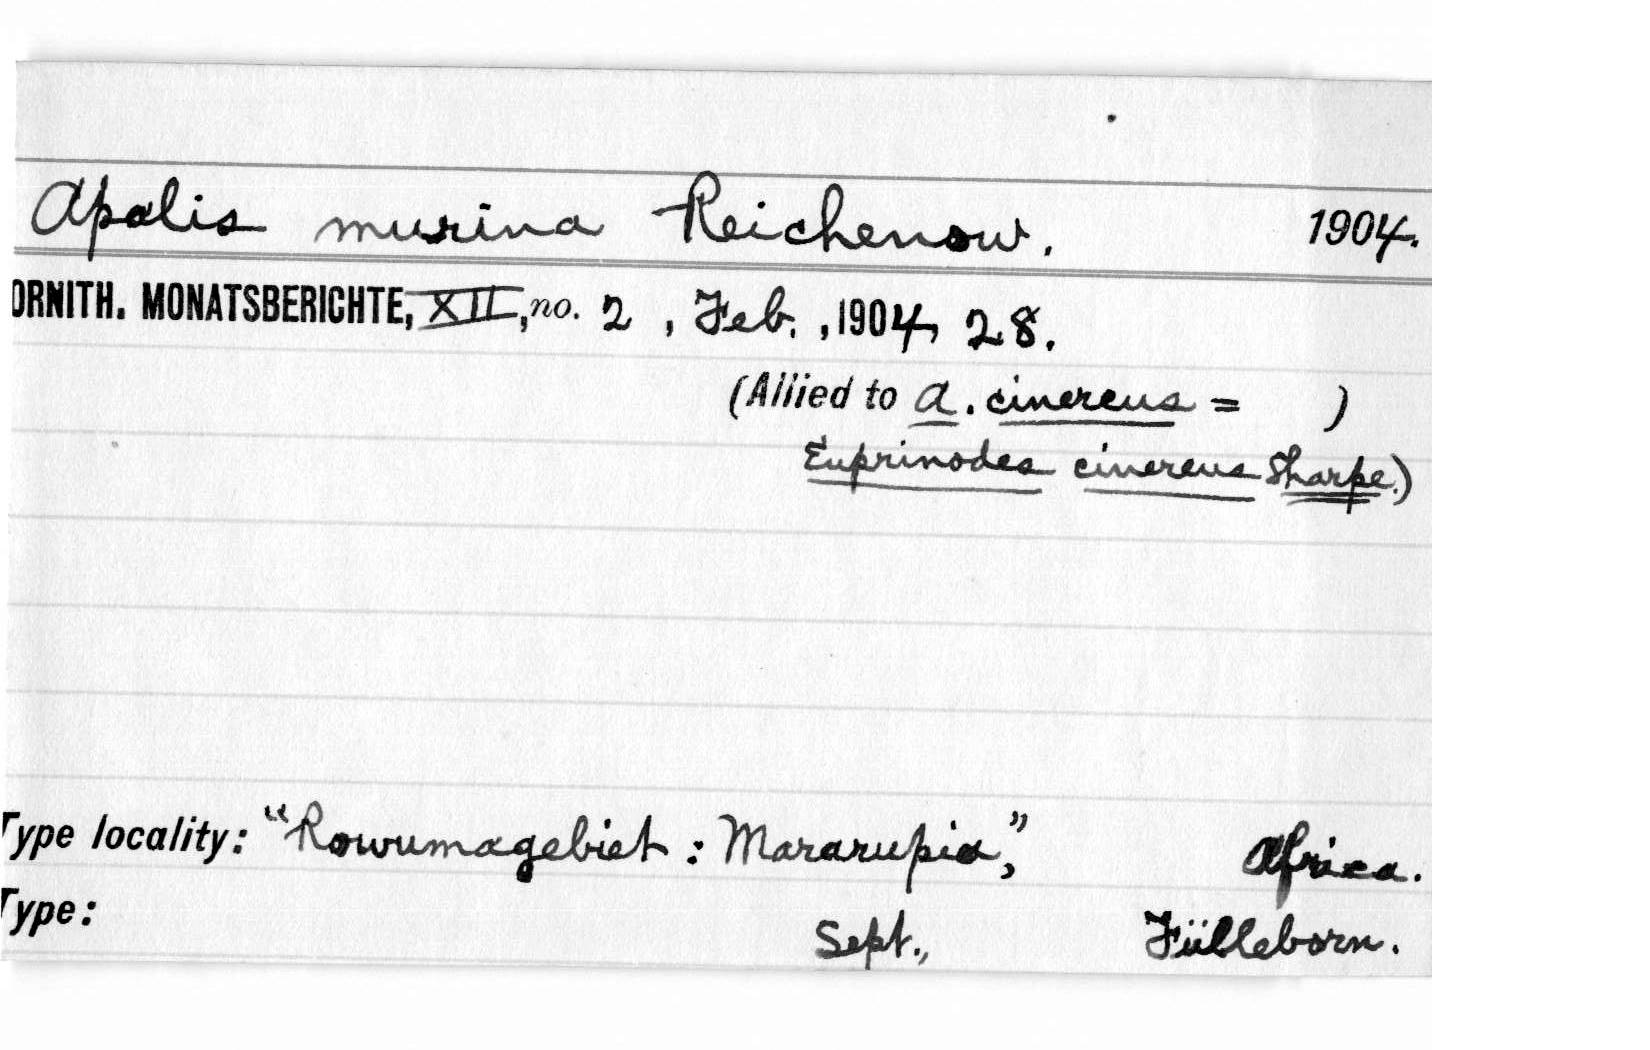 Apalis murina Reichenow. 1904.
ORNITH. MONATSBERICHTE, XII, no. 2, Feb., 1904, 28.
(Allied to A. cinereus = )
Euprinodes cinereus Sharpe.)
Type locality: "Rowumagebiet: Mararupia," Africa.
Type: Sept., Fülleborn.